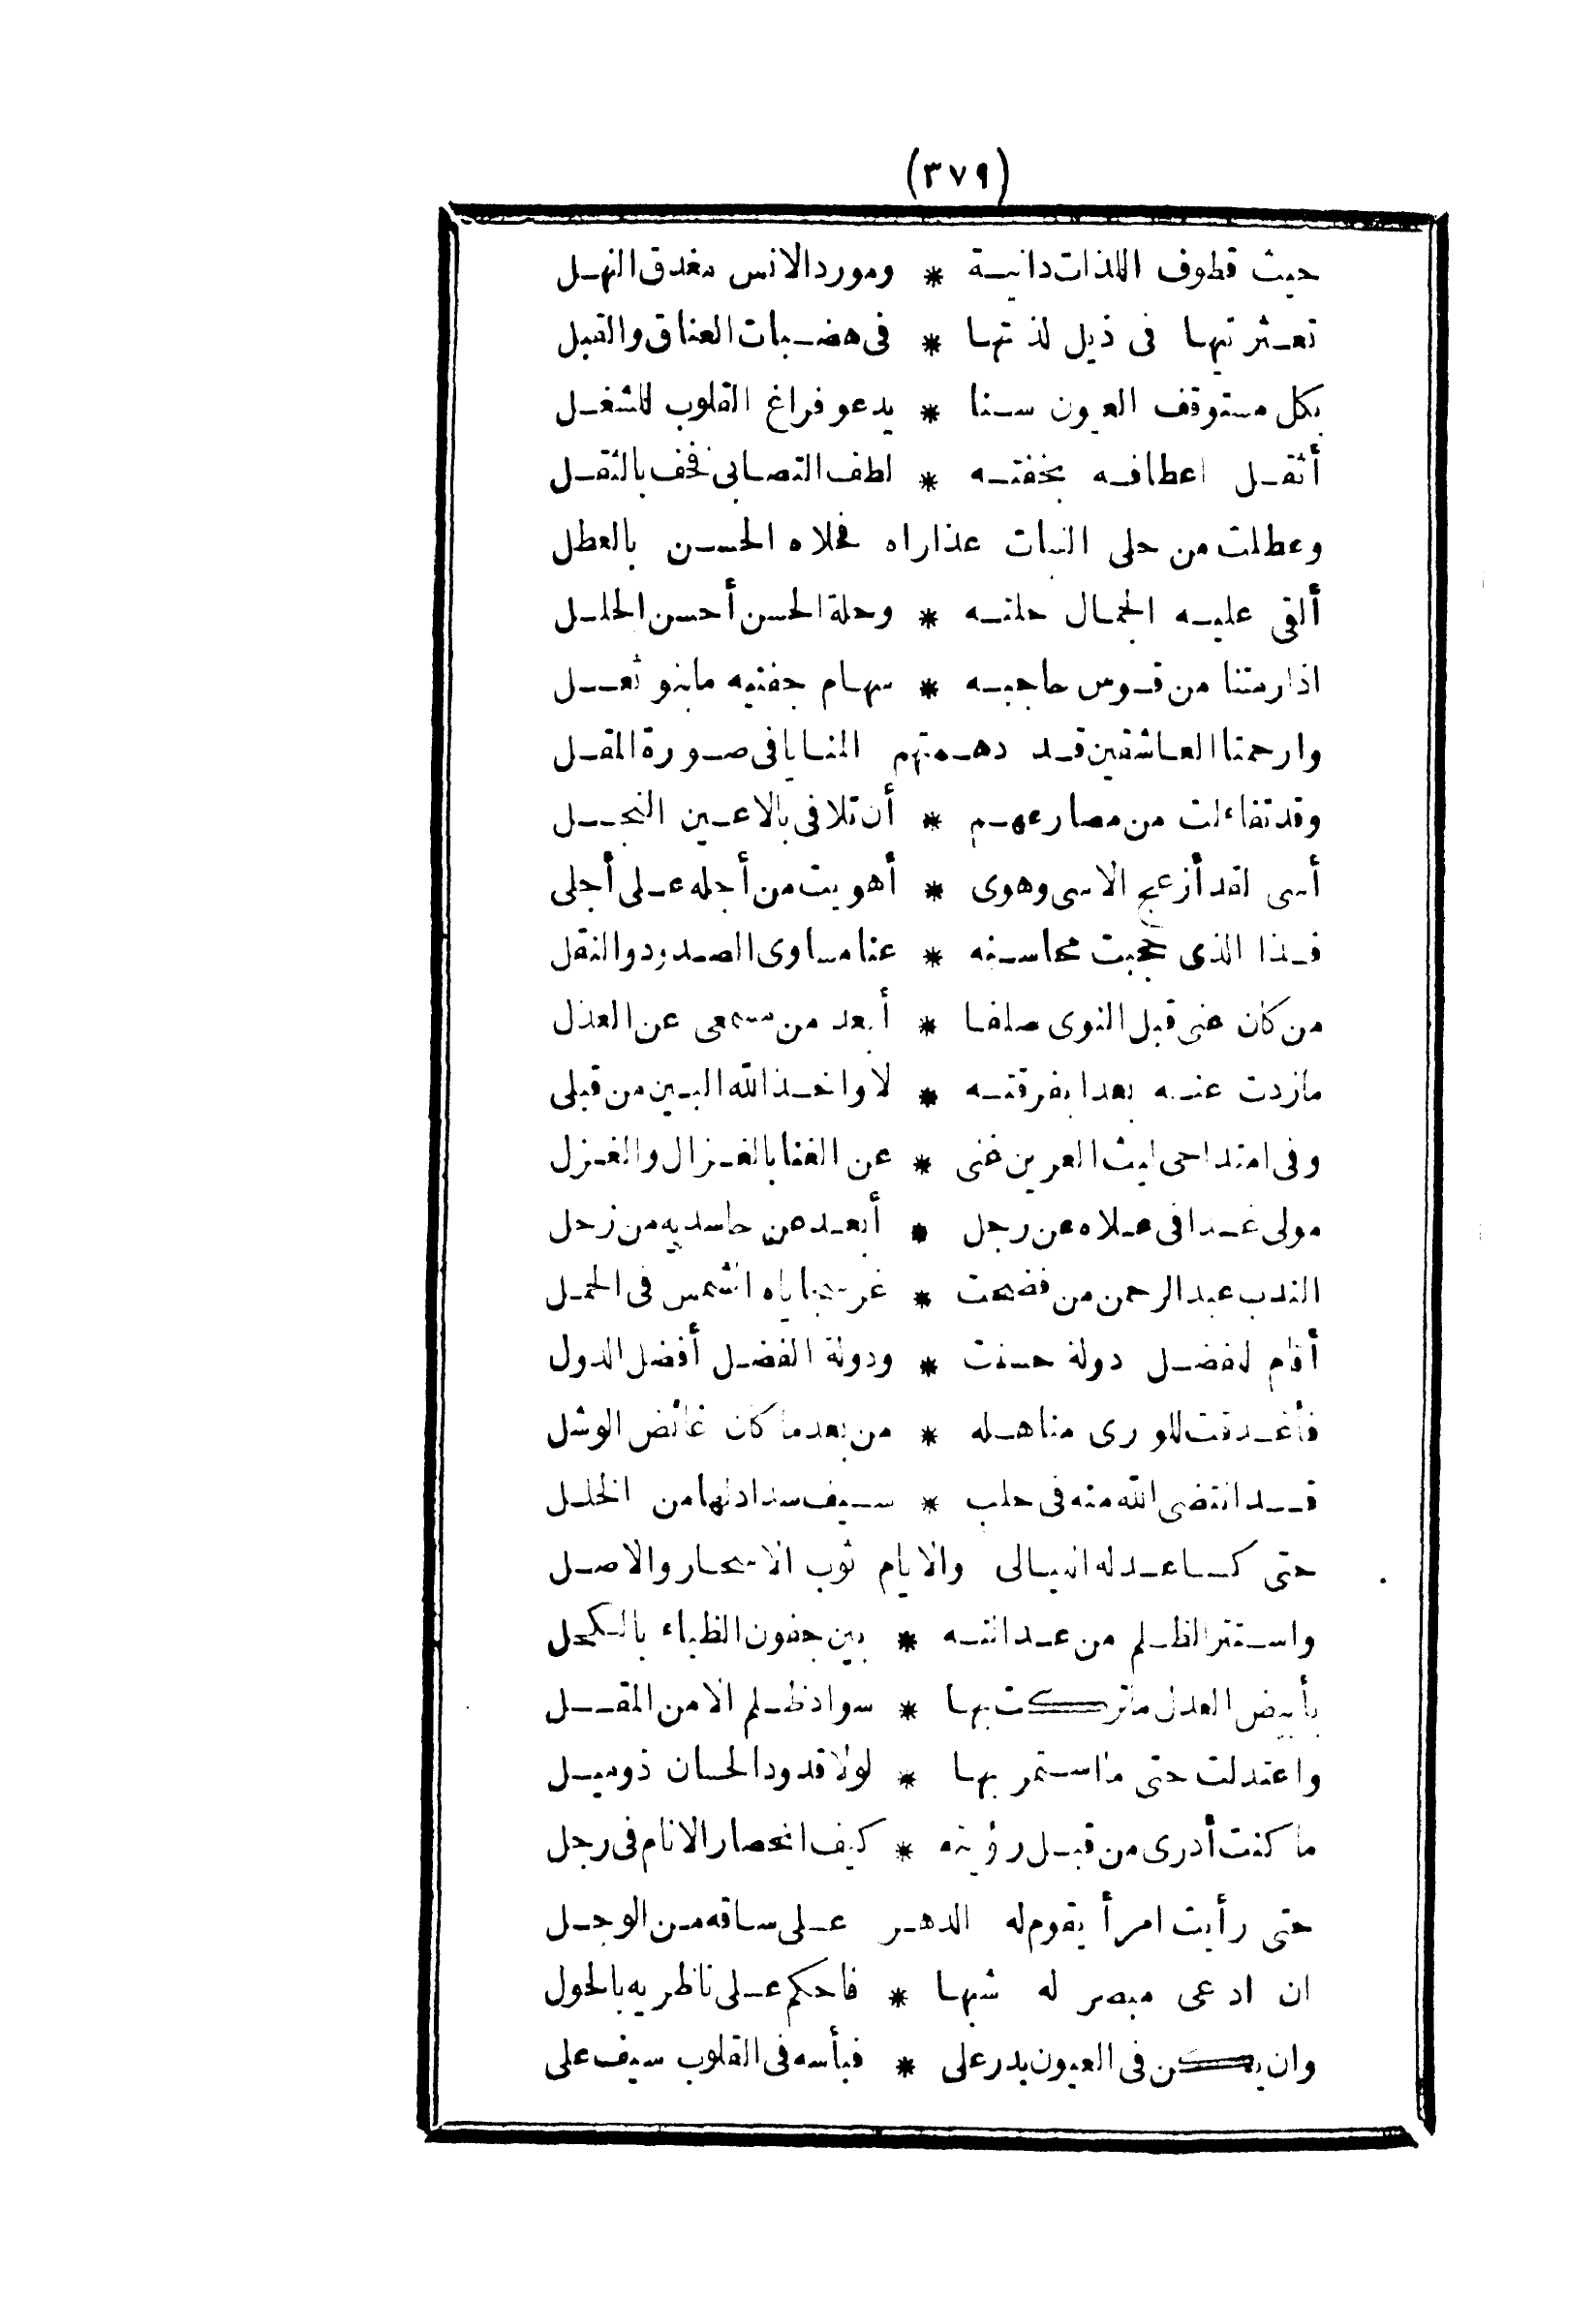 (٣٧٩)
حيث قطوف اللذات دانيــة * ومورد الانس مغدق النهـل
تعـثر تيهـا فى ذيل لذتهـا * فى هضـبات العناق والقبل
بكل مستوقف العيون سـنا * يدعو فراغ القلوب للشغـل
أثقـل اعطافـه بخفتـه * لطف التصابى فخف بالثقـل
وعطلت من حلى النبات عذاراه فحلاه الحسـن بالعطل
ألقى عليـه الجمـال حلتـه * وحلة الحسن أحسن الحلـل
اذا رمتنا من قـوس حاجبـه * سهـام جفنيه ما بنو ثعــل
وارحمتا العـاشقين قـد دهـمتهم المنـايا فى صـورة المقـل
وقد تفاءلت من مصارعهـم * أن تلافى بالاعـين النجــل
أسى لقد أزعج الاسى وهوى * أهويت من أجله عـلى أجلى
فـذا الذى حجبت محاسـنه * عنا مسـاوى الصـدود والنقل
من كان عنى قبل النوى صلفـا * أبعد من سمعى عن العذل
مازدت عنـه بعدا بفرقتـه * لا واخـذ الله البـين من قبلى
وفى امتداحى ليث العرين غنى * عن الغنا بالغـزال والغـزل
مولى غـدا فى عـلاه عن رجل * أبعـد عن حاسديه من زحل
الندب عبد الرحمن من فضحت * غر سجاياه الشمس فى الحمـل
أقام للفضـل دولة حسنت * ودولة الفضـل أفضل الدول
فأغـدقت للورى مناهـله * من بعد ما كان غائض الوشل
قــد انتضى الله منه فى حلب * سـيف سداد لها من الخلـل
حتى كـسا عـدله الليـالى والايام ثوب الاسحـار والاصـل
واسـتتر الظـلم من عـدالتـه * بين جفون الظباء بالـكحل
بأبيض العدل ما تركـت بهـا * سواد ظـلم الا من المقــل
واعتدلت حتى ما اسـتمر بهـا * لولا قدود الحسان ذو ميـل
ما كنت أدرى من قبـل رؤيته * كيف انحصار الانام فى رجل
حتى رأيت امرأ يقوم له الدهـر عـلى ساقه مـن الوجـل
ان ادعى مبصر له شبهـا * فاحكم عـلى ناظريه بالحول
وان يكـن فى العيون بدر على * فبأسه فى القلوب سيف على